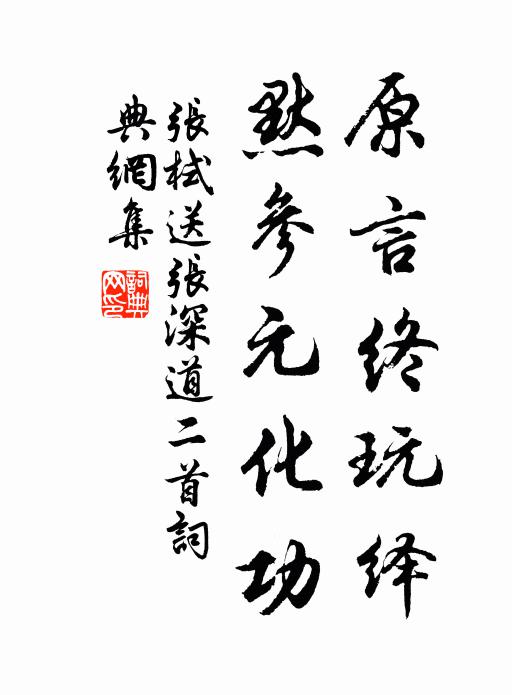 原言终玩绎
默参元化功
張栻送張深道二首詞
典網集
詞典网印